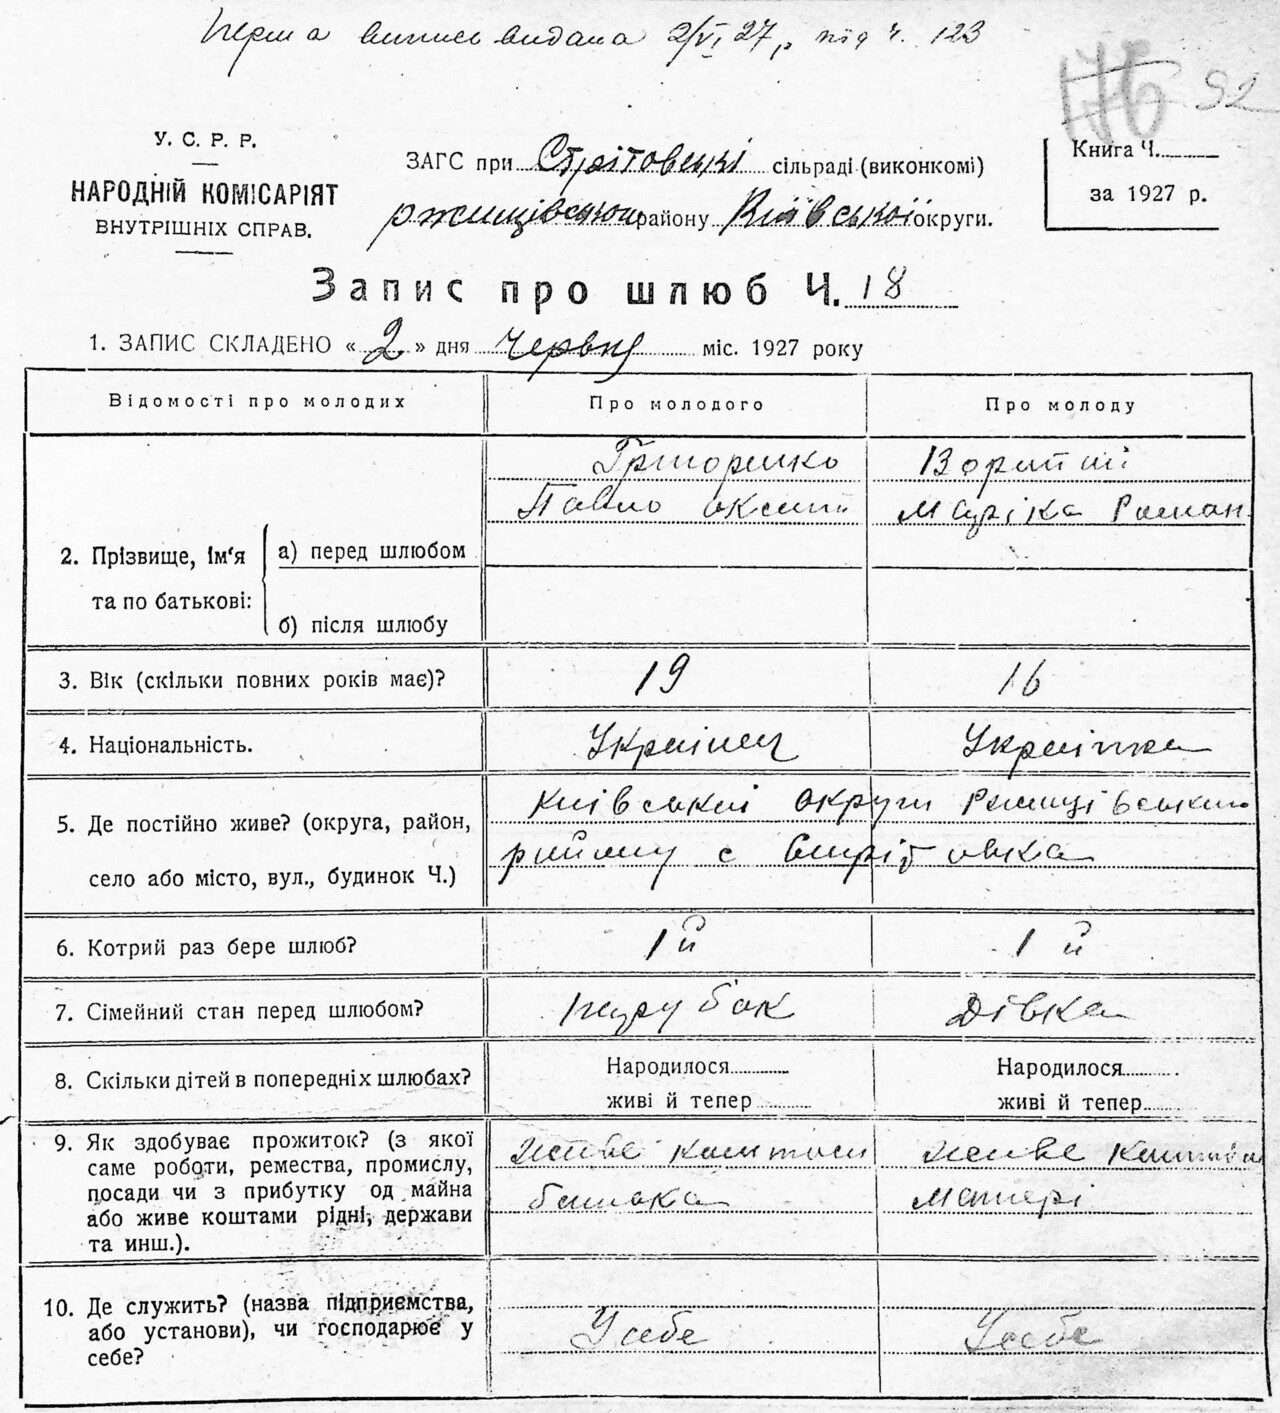 Перша випись видана 2/VI 27 р. під ч. 123
176 92
У. С. Р. Р.
НАРОДНІЙ КОМІСАРІЯТ
ВНУТРІШНІХ СПРАВ.
ЗАГС при Стрітовські сільраді (виконкомі)
ржищівського району Київської округи.
Книга Ч.
за 1927 р.
Запис про шлюб Ч. 18
1. ЗАПИС СКЛАДЕНО « 2 » дня Червня міс. 1927 року
Відомості про молодих Про молодого Про молоду
2. Прізвище, ім'я та по батькові:
а) перед шлюбом
б) після шлюбу
Григоренко
Павло
Роман
3. Вік (скільки повних років має)? 19 16
4. Національність. Українец Українка
5. Де постійно живе? (округа, район,
село або місто, вул., будинок Ч.)
Київські округи Ржищівського
району с Стрітовка
6. Котрий раз бере шлюб? 1й 1й
7. Сімейний стан перед шлюбом? парубок Дівка
8. Скільки дітей в попередніх шлюбах? Народилося Народилося
живі й тепер живі й тепер
9. Як здобуває прожиток? (з якої
саме роботи, ремества, промислу,
посади чи з прибутку од майна
або живе коштами рідні, держави
та инш.).
живе коштами
батька
живе коштами
матері
10. Де служить? (назва підприємства,
або установи), чи господарює у
себе?
У себе У себе